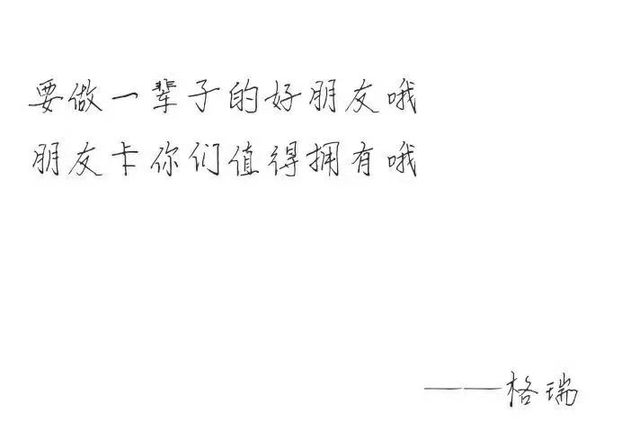 要做一辈子的好朋友哦
朋友卡你们值得拥有哦
——格瑞